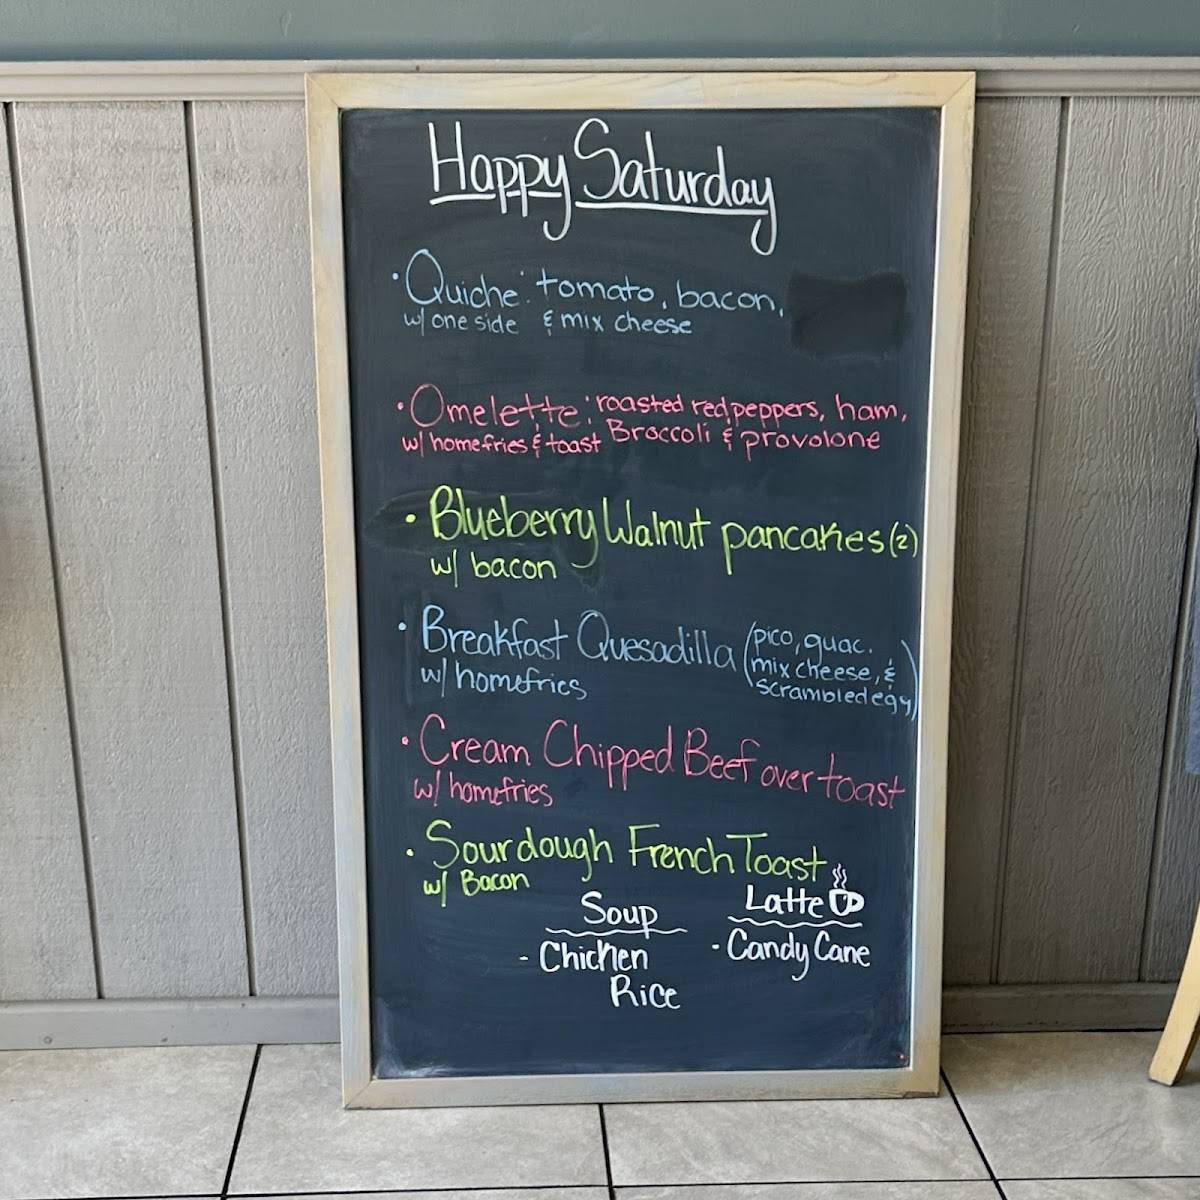 Happy Saturday
· Quiche: tomato, bacon,
w/ one side & mix cheese
· Omelette: roasted red peppers, ham,
w/ homefries & toast Broccoli & provolone
· Blueberry Walnut pancakes (2)
w/ bacon
· Breakfast Quesadilla (pico, guac.
mix cheese, &
w/ homefries scrambled egg)
· Cream Chipped Beef over toast
w/ homefries
· Sourdough French Toast
w/ Bacon
Soup
- Chicken
Rice
Latte
· Candy Cane